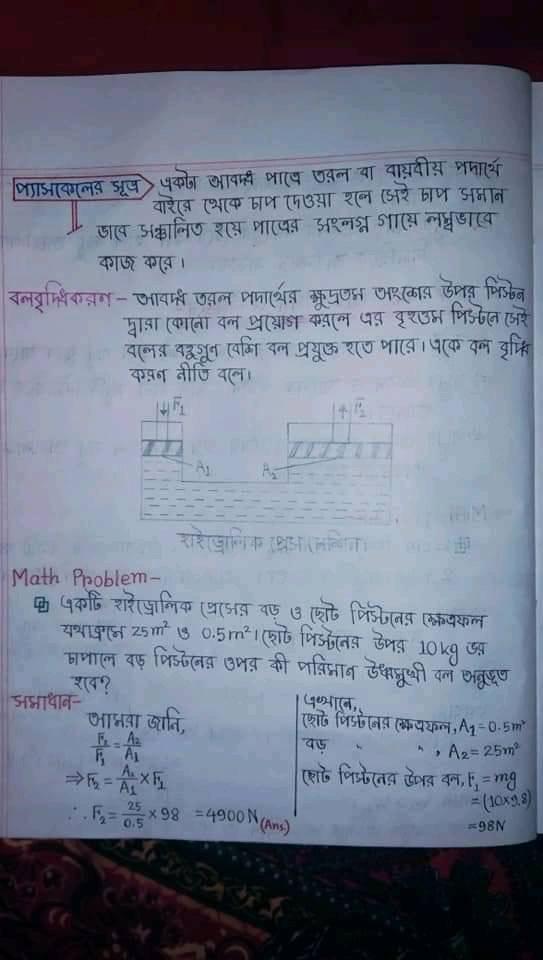 প্যাসকেলের সূত্র একটা আবদ্ধ পাত্রে তরল বা বায়বীয় পদার্থে
বাইরে থেকে চাপ দেওয়া হলে সেই চাপ সমান
ভাবে সঞ্চালিত হয়ে পাত্রের সংলগ্ন গায়ে লম্বভাবে
কাজ করে।
বলবৃদ্ধিকরণ - আবদ্ধ তরল পদার্থের ক্ষুদ্রতম অংশের উপর পিস্টন
দ্বারা কোনো বল প্রয়োগ করলে এর বৃহত্তম পিস্টনে সেই
বলের বহুগুণ বেশি বল প্রযুক্ত হতে পারে। একে বল বৃদ্ধি
করণ নীতি বলে।
F₁ F₂
A₁ A₂
হাইড্রোলিক প্রেস মেশিন।
Math Problem -
একটি হাইড্রোলিক প্রেসের বড় ও ছোট পিস্টনের ক্ষেত্রফল
যথাক্রমে 25m² ও 0.5m²। ছোট পিস্টনের উপর 10kg ভর
চাপালে বড় পিস্টনের ওপর কী পরিমান উর্ধ্বমুখী বল অনুভূত
হবে?
সমাধান-
আমরা জানি,
F₂/F₁ = A₂/A₁
⇒ F₂ = A₂/A₁ × F₁
∴ F₂ = 25/0.5 × 98 = 4900 N (Ans)
এখানে,
ছোট পিস্টনের ক্ষেত্রফল, A₁ = 0.5m²
বড় " ", A₂ = 25m²
ছোট পিস্টনের উপর বল, F₁ = mg
= (10×9.8)
= 98N